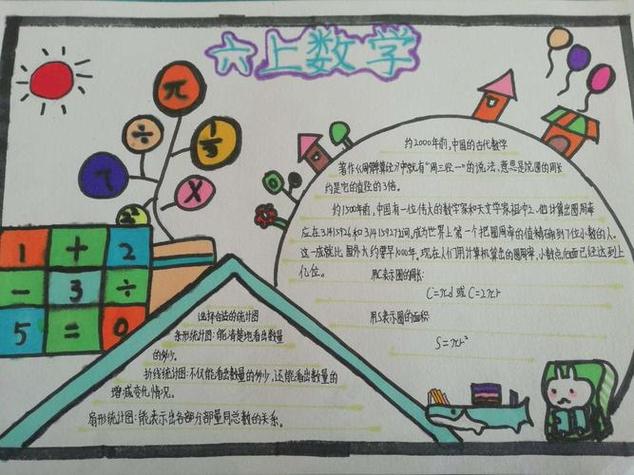 六上数学
π
÷
1/3
7
X
1 + 2
- 3 ÷
5 = 0
约2000年前,中国的古代数学
著作《周髀算经》中就有“周三径一”的说法,意思是说圆的周长
约是它的直径的3倍。
约1500年前,中国有一位伟大的数学家和天文学家祖冲之。他计算出圆周率
应在3.1415926和3.1415927之间,成为世界上第一个把圆周率的值精确到7位小数的人。
这一成就比国外大约要早1000年。现在人们用计算机算出的圆周率,小数点后面已经达到上
亿位。
用C表示圆的周长:
C=πd 或 C=2πr
用S表示圆的面积
S=πr²
选择合适的统计图
条形统计图:能清楚地看出数量
的多少。
折线统计图:不仅能看出数量的多少,还能看出数量的
增减变化情况。
扇形统计图:能表示出各部分数量同总数的关系。